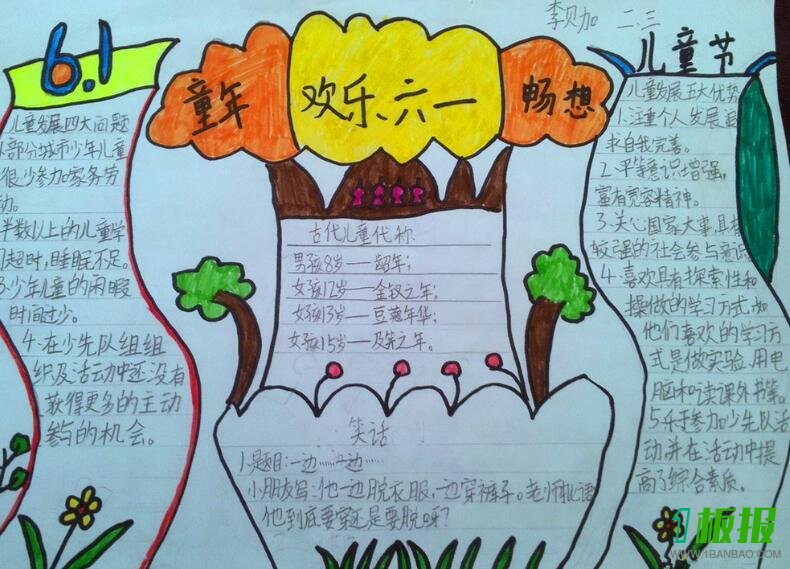 李贝加 二.三
6.1
童年 欢乐、六一 畅想
儿童节
儿童发展四大问题
1.部分城市少年儿童
很少参加家务劳
动。
半数以上的儿童学
习超时,睡眠不足。
3.少年儿童的闲暇
时间过少。
4.在少先队组组
织及活动中还没有
获得更多的主动
参与的机会。
古代儿童代称
男孩8岁——龆年;
女孩12岁——金钗之年;
女孩13岁——豆蔻年华;
女孩15岁——及笄之年。
笑话
1.题目:一边……一边……
小朋友写:他一边脱衣服,一边穿裤子。老师批语
他到底要穿还是要脱呀?
儿童发展五大优势
1.注重个人发展追
求自我完善。
2.平等意识增强,
富有宽容精神。
3.关心国家大事具有
较强的社会参与意识
4.喜欢具有探索性和
操做的学习方式,如
他们喜欢的学习方
式是做实验、用电
脑和读课外书等。
5.乐于参加少先队活
动,并在活动中提
高了综合素质。
1板报
WWW.1BANBAO.COM